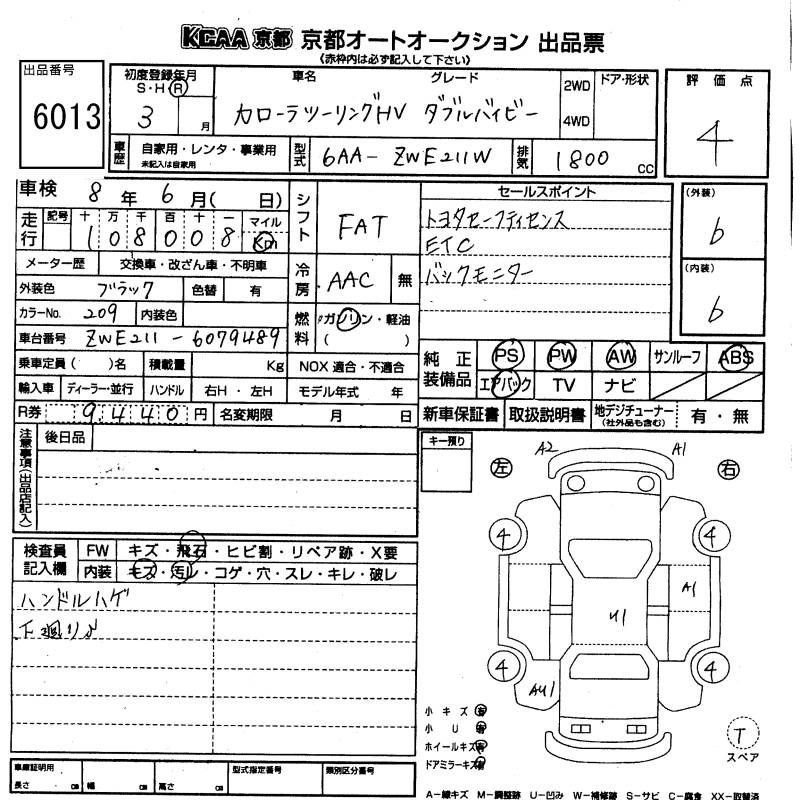 KCAA 京都 京都オートオークション 出品票
《赤枠内は必ず記入して下さい》
出品番号
6013
初度登録年月
S・H・R
3 月
車名 グレード
カローラツーリングHV ダブルバイビー
2WD
4WD
ドア・形状
評価点
4
車歴
自家用・レンタ・事業用
未記入は自家用
型式
6AA-ZWE211W
排気
1800 cc
車検 8年 6月( 日)
走行
記号 十 万 千 百 十 一 マイル
1 0 8 0 0 8 Km
メーター歴 交換車・改ざん車・不明車
外装色 ブラック 色替 有
カラーNo. 209 内装色
車台番号 ZWE211-6079489
乗車定員( )名 積載量 Kg
輸入車 ディーラー・並行 ハンドル 右H・左H
R券 9,440円 名変期限 月 日
シフト
FAT
冷房
AAC 無
燃料
ガソリン・軽油
( )
NOX 適合・不適合
モデル年式 年
セールスポイント
トヨタセーフティセンス
ETC
バックモニター
(外装)
6
(内装)
6
純正装備品
PS PW AW サンルーフ ABS
エアバック TV ナビ
新車保証書 取扱説明書 地デジチューナー(社外品も含む) 有・無
注意事項(出品店記入)
後日品
キー預り
検査員記入欄
FW キズ・飛石・ヒビ割・リペア跡・X要
内装 キズ・汚レ・コゲ・穴・スレ・キレ・破レ
ハンドルハゲ
下廻りサ
左 右
A2 A1
4 4
A1
U1
4 4
AU1
小キズ 有
小U 有
ホイールキズ 有
ドアミラーキズ 有
T
スペア
車庫証明用
長さ cm 幅 cm 高さ cm
型式指定番号
類別区分番号
A-線キズ M-調整跡 U-凹み W-補修跡 S-サビ C-腐食 XX-取替済